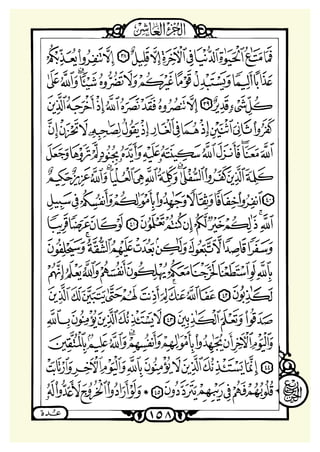 الجزء العاشر
فَمَا مَتَٰعُ ٱلْحَيَوٰةِ ٱلدُّنْيَا فِى ٱلْءَاخِرَةِ إِلَّا قَلِيلٌ ٣٨ إِلَّا تَنفِرُوا۟ يُعَذِّبْكُمْ
عَذَابًا أَلِيمًا وَيَسْتَبْدِلْ قَوْمًا غَيْرَكُمْ وَلَا تَضُرُّوهُ شَيْـًٔا وَٱللَّهُ عَلَىٰ
كُلِّ شَىْءٍ قَدِيرٌ ٣٩ إِلَّا تَنصُرُوهُ فَقَدْ نَصَرَهُ ٱللَّهُ إِذْ أَخْرَجَهُ ٱلَّذِينَ
كَفَرُوا۟ ثَانِىَ ٱثْنَيْنِ إِذْ هُمَا فِى ٱلْغَارِ إِذْ يَقُولُ لِصَٰحِبِهِۦ لَا تَحْزَنْ إِنَّ
ٱللَّهَ مَعَنَا فَأَنزَلَ ٱللَّهُ سَكِينَتَهُۥ عَلَيْهِ وَأَيَّدَهُۥ بِجُنُودٍ لَّمْ تَرَوْهَا وَجَعَلَ
كَلِمَةَ ٱلَّذِينَ كَفَرُوا۟ ٱلسُّفْلَىٰ وَكَلِمَةُ ٱللَّهِ هِىَ ٱلْعُلْيَا وَٱللَّهُ عَزِيزٌ حَكِيمٌ
٤٠ ٱنفِرُوا۟ خِفَافًا وَثِقَالًا وَجَٰهِدُوا۟ بِأَمْوَٰلِكُمْ وَأَنفُسِكُمْ فِى سَبِيلِ
ٱللَّهِ ذَٰلِكُمْ خَيْرٌ لَّكُمْ إِن كُنتُمْ تَعْلَمُونَ ٤١ لَوْ كَانَ عَرَضًا قَرِيبًا
وَسَفَرًا قَاصِدًا لَّٱتَّبَعُوكَ وَلَٰكِنۢ بَعُدَتْ عَلَيْهِمُ ٱلشُّقَّةُ وَسَيَحْلِفُونَ
بِٱللَّهِ لَوِ ٱسْتَطَعْنَا لَخَرَجْنَا مَعَكُمْ يُهْلِكُونَ أَنفُسَهُمْ وَٱللَّهُ يَعْلَمُ إِنَّهُمْ
لَكَٰذِبُونَ ٤٢ عَفَا ٱللَّهُ عَنكَ لِمَ أَذِنتَ لَهُمْ حَتَّىٰ يَتَبَيَّنَ لَكَ ٱلَّذِينَ
صَدَقُوا۟ وَتَعْلَمَ ٱلْكَٰذِبِينَ ٤٣ لَا يَسْتَـْٔذِنُكَ ٱلَّذِينَ يُؤْمِنُونَ بِٱللَّهِ
وَٱلْيَوْمِ ٱلْءَاخِرِ أَن يُجَٰهِدُوا۟ بِأَمْوَٰلِهِمْ وَأَنفُسِهِمْ وَٱللَّهُ عَلِيمٌۢ بِٱلْمُتَّقِينَ
٤٤ إِنَّمَا يَسْتَـْٔذِنُكَ ٱلَّذِينَ لَا يُؤْمِنُونَ بِٱللَّهِ وَٱلْيَوْمِ ٱلْءَاخِرِ وَٱرْتَابَتْ
قُلُوبُهُمْ فَهُمْ فِى رَيْبِهِمْ يَتَرَدَّدُونَ ٤٥ وَلَوْ أَرَادُوا۟ ٱلْخُرُوجَ لَأَعَدُّوا۟ لَهُۥ
١٥٨
عدة